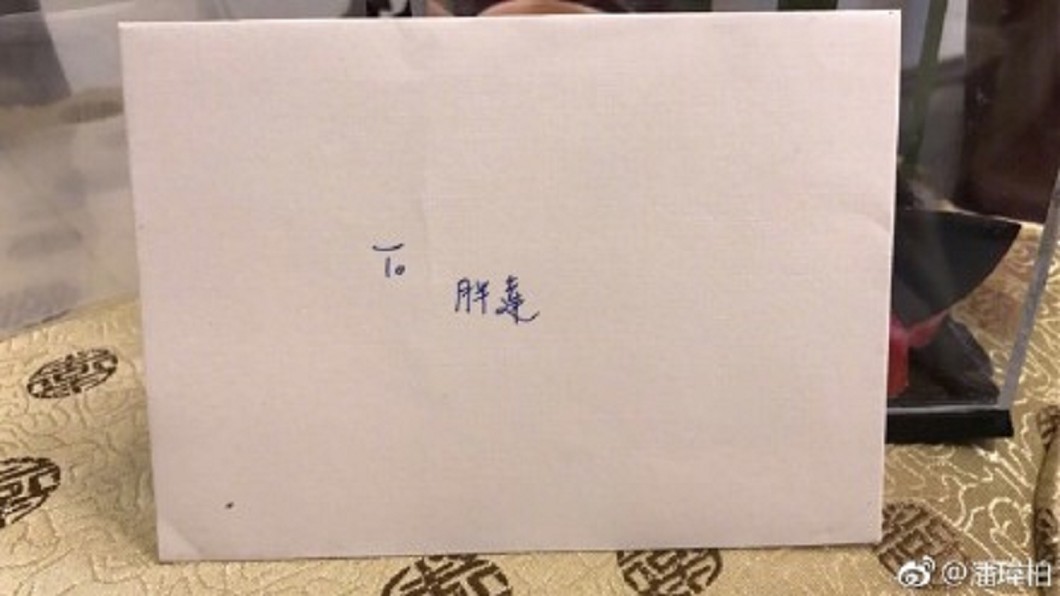 To
胖達
@潘瑋柏